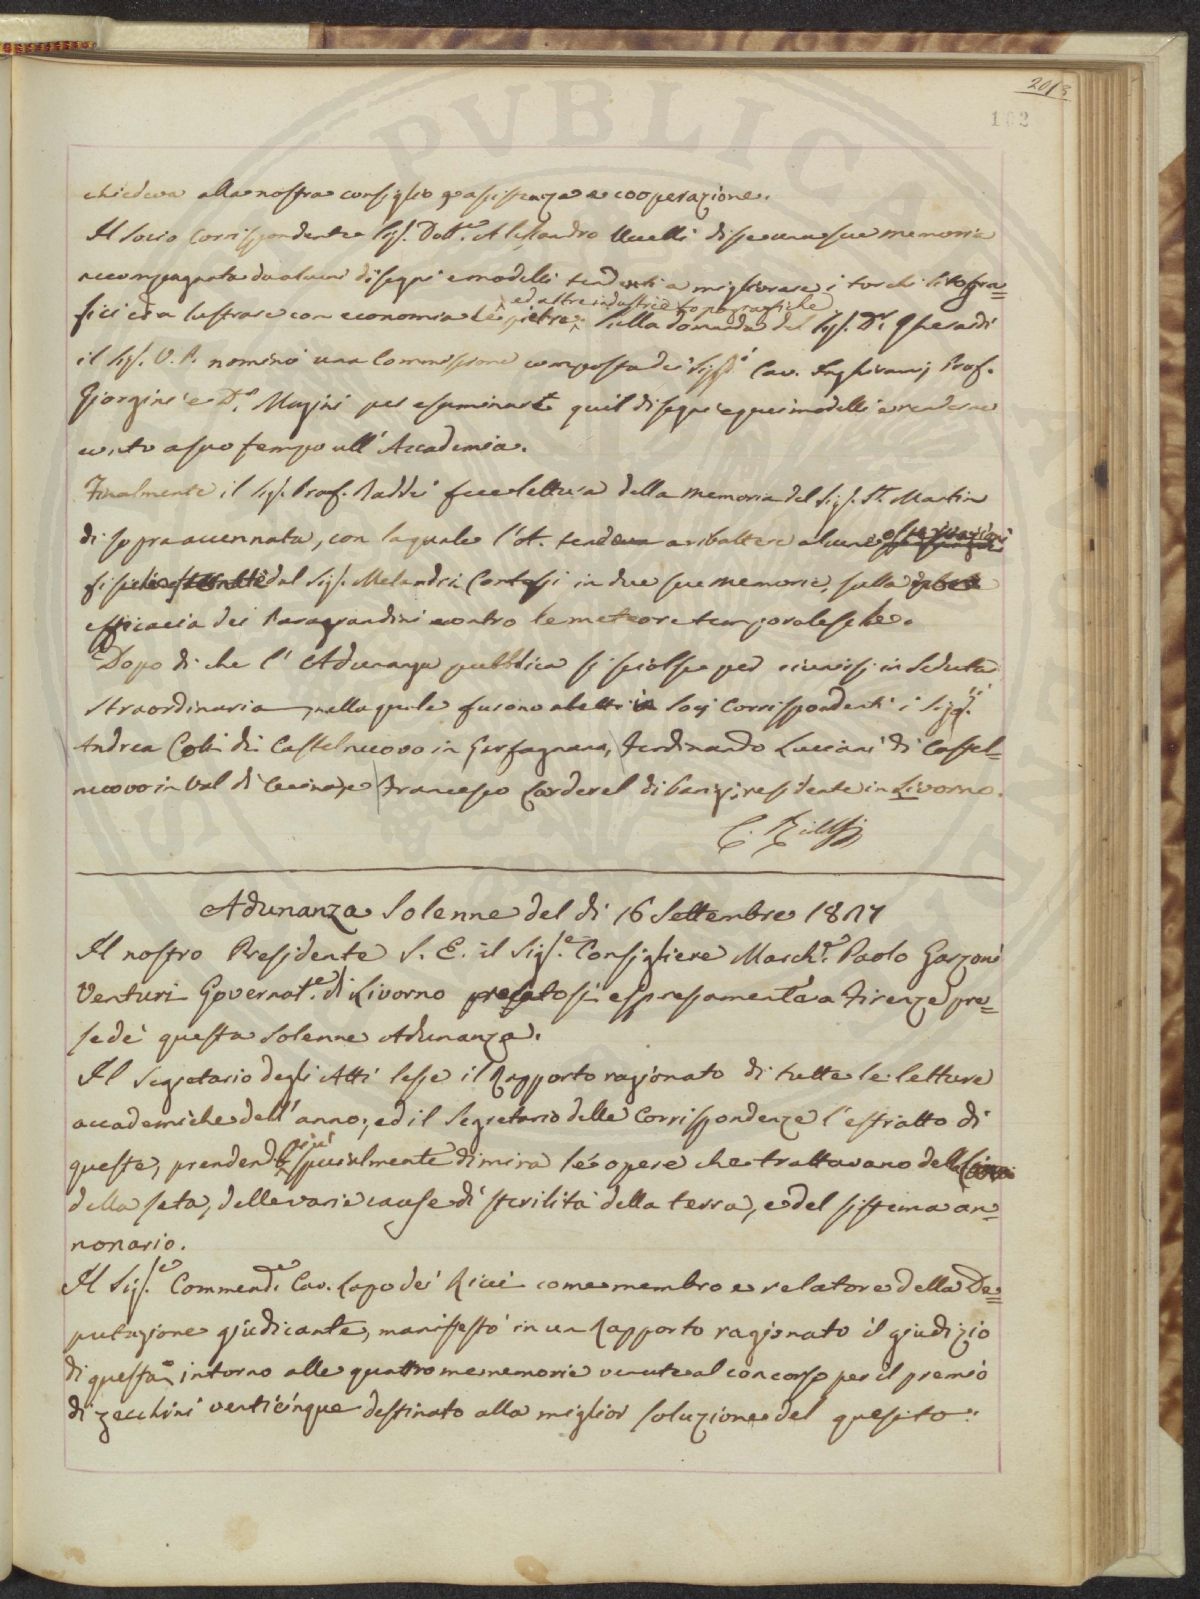 2013
102
chiedeva alla nostra consiglio assistenza e cooperazione.
Il Socio Corrispondente Sig. Dott.e Alessandro Uccelli disse una sua memoria
accompagnata da alcuni disegni e modelli tendenti a migliorare i torchi litogra=
ed altre industrie topografiche
fici ed a lustrare con economia le pietre. Sulla domanda del Sig. D.r Gherardi
il Sig. V. P. nominò una Commissione composta dei Sigg.i Cav. Inghirami, Prof.
Giorgini e D.e Magini per esaminare quei disegni e quei modelli e renderne
conto a suo tempo all'Accademia.
Finalmente il Sig. Prof. Taddei fece lettura della memoria del Sig. St. Martin
di sopra accennata, con la quale l'A. tendeva a ribattere alcune osservazioni
dal Sig. Melandri Contessi in due sue memorie, sulla
efficacia dei Paragrandini contro le meteore temporalesche.
Dopo di che l'Adunanza pubblica si sciolse per riunirsi in Seduta
straordinaria, nella quale furono eletti in Socj Corrispondenti i Sigg.ri
Andrea Coli di Castelnuovo in Garfagnana, Ferdinando Lucciani di Castel-
nuovo in Val di Cecina, e Francesco Larderel di Parigi, residente in Livorno.
C. Ridolfi
Adunanza Solenne del dì 16 Settembre 1827
Il nostro Presidente S. E. il Sig.e Consigliere March.e Paolo Garzoni
Venturi Governat.e di Livorno recatosi espressamente a Firenze pre=
sedè questa solenne Adunanza.
Il Segretario degli Atti lesse il Rapporto ragionato di tutte le letture
accademiche dell'anno; ed il Segretario delle Corrispondenze l'estratto di
queste, prendendo più specialmente di mira le opere che trattavano della
della seta, delle varie cause di sterilità della terra, e del sistema an=
nonario.
Il Sig.e Commend.e Cav. Lapo de' Ricci come membro e relatore della De=
putazione giudicante, manifestò in un Rapporto ragionato il giudizio
di questa intorno alle quattro memorie venute al concorso per il premio
di zecchini venticinque destinato alla miglior soluzione del quesito: